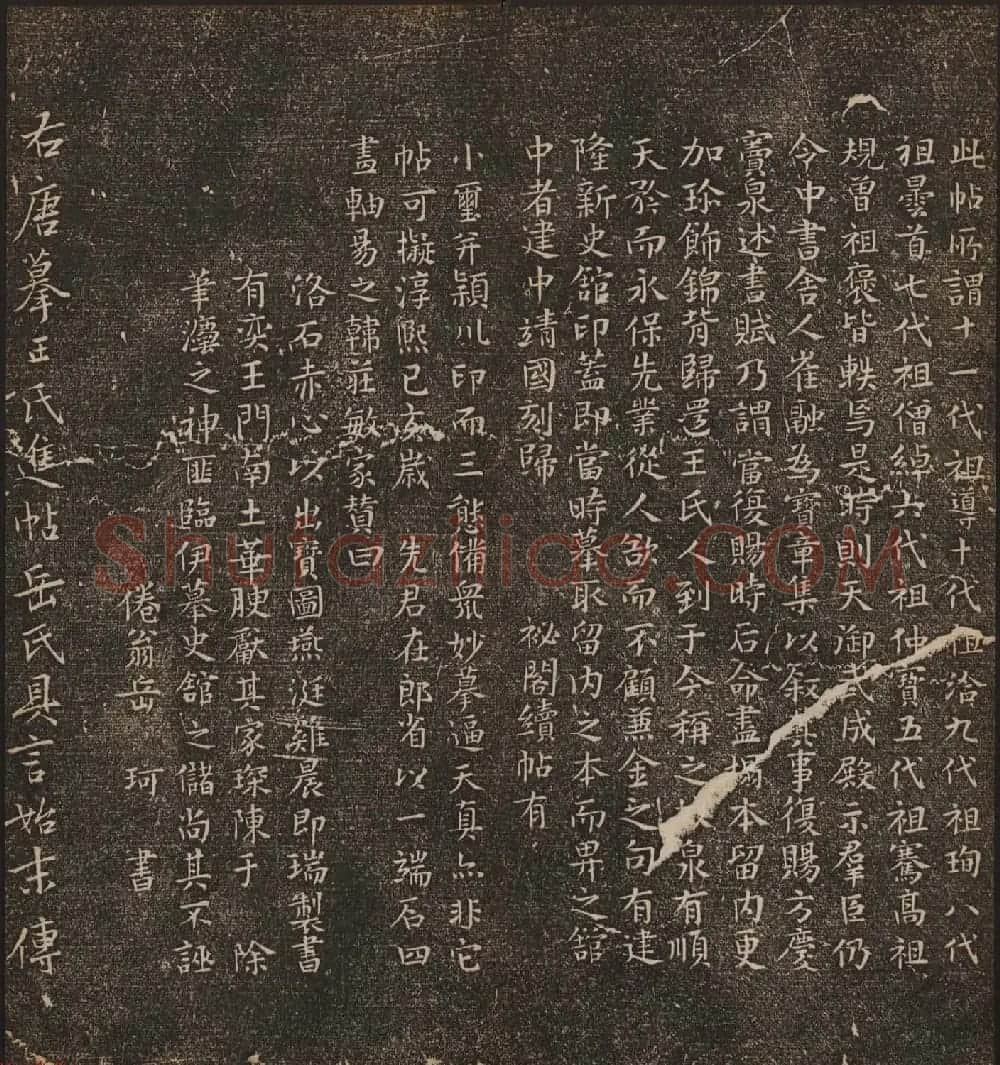 此帖所謂十一代祖導十代祖洽九代祖珣八代
祖曇首七代祖僧綽六代祖仲寶五代祖騫高祖
規曾祖褒皆軼焉是時則天御武成殿示羣臣仍
令中書舍人崔融為寶章集以叙其事復賜方慶
竇泉述書賦乃謂當復賜時后命盡搨本留内更
加珍飾錦背歸還王氏人到于今稱之泉有順
天矜而永保先業從人欲而不顧兼金之句有建
隆新史舘印蓋即當時摹取留内之本而畀之舘
中者建中靖國刻歸 祕閣續帖有
小璽并潁川印而三態備衆妙摹逼天真亦非它
帖可擬淳熙已亥歲 先君在郎省以一端石四
畫軸易之韓莊敏家贊曰
洛石赤心以出寶圖燕涎雞晨即瑞製書
有奕王門南土華腴獻其家琛陳于 除
筆瀍之神匪臨伊摹史舘之儲尚其不誣
倦翁岳 珂 書
右唐摹王氏進帖岳氏具言始末傳
Shufaziliao.COM